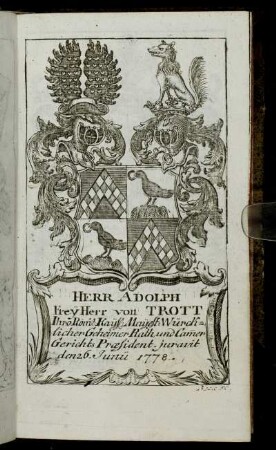 HERR ADOLPH
Frey Herr von TROTT
Ihro Röm. Kays. Mayest. Würck=
licher Geheimer Rath, und Camer
Gerichts Præsident. juravit
den 26. Junii 1778.